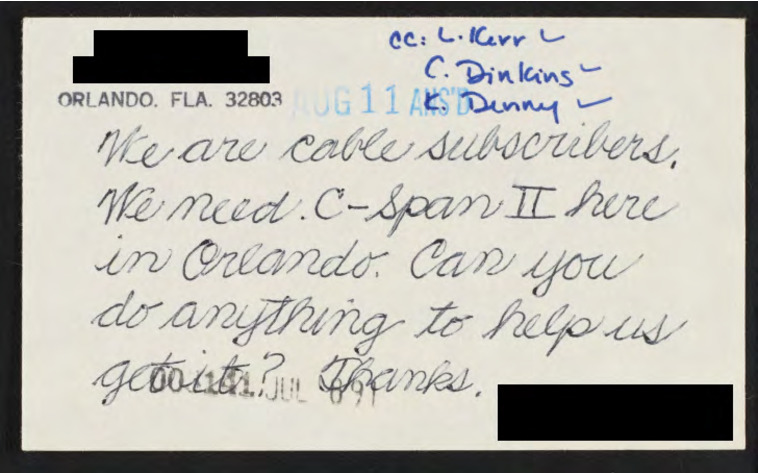 cc: L. Kerr
C. Dinkins
ORLANDO, FLA. 32803
AUG 11 ANS'D
K. Denny
We are cable subscribers.
We need C-Span II here
in Orlando. Can you
do anything to help us
get it? Thanks.
JUL